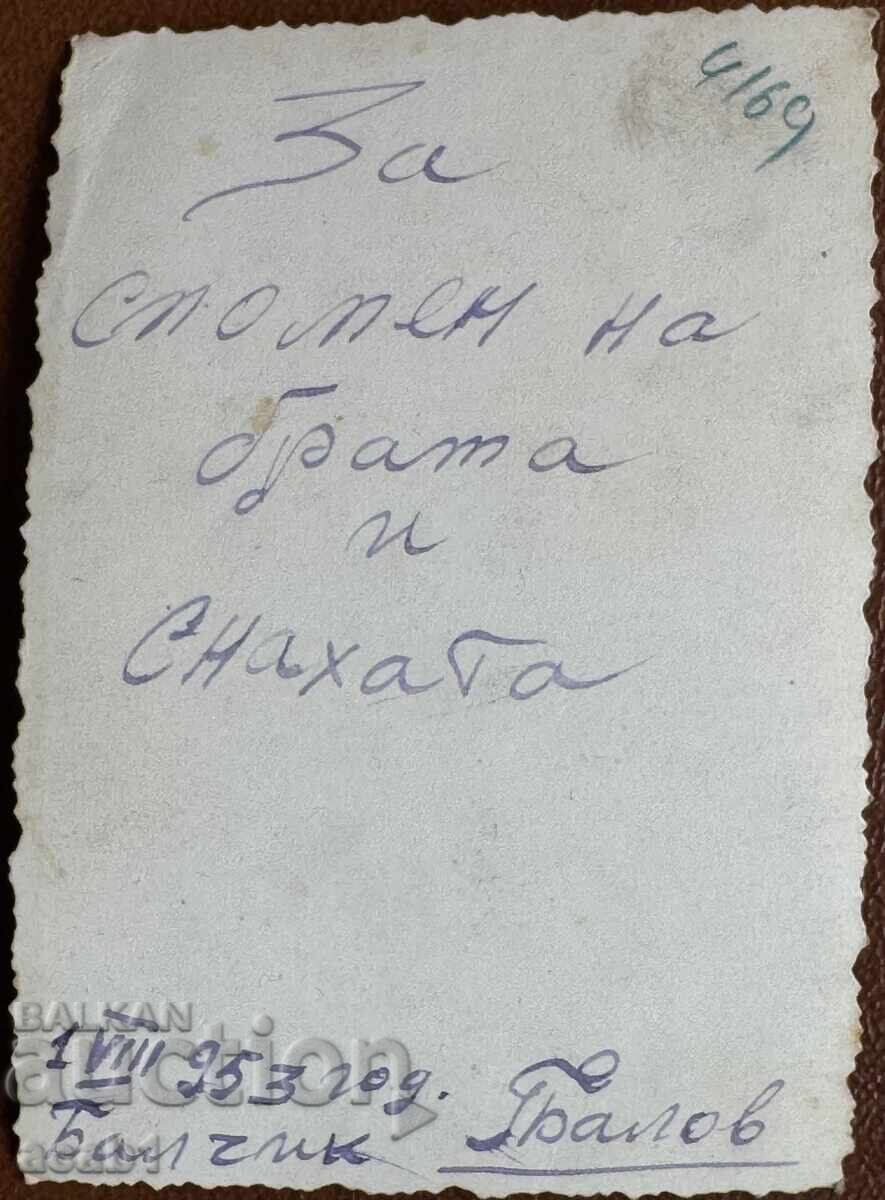 4169
За
спомен на
брата
и
снахата
BALKAN
auction
1 VIII 953 год.
Балчик
acab1